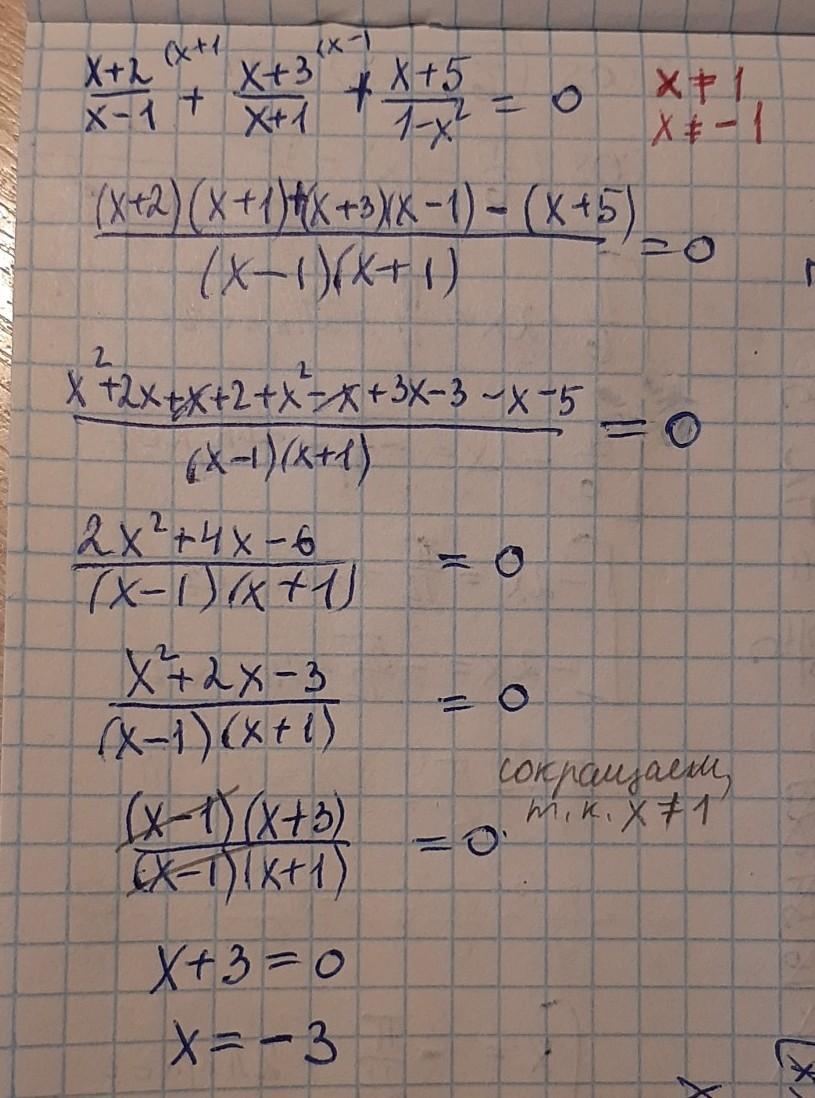 x+2/x-1 (x+1 + x+3/x+1 (x-1 + x+5/1-x² = 0 x ≠ 1
x ≠ -1
(x+2)(x+1)+(x+3)(x-1)-(x+5)/(x-1)(x+1) = 0
x²+2x+x+2+x²-x+3x-3-x-5/(x-1)(x+1) = 0
2x²+4x-6/(x-1)(x+1) = 0
x²+2x-3/(x-1)(x+1) = 0
сокращаем,
т.к. x ≠ 1
(x-1)(x+3)/(x-1)(x+1) = 0
x+3=0
x=-3